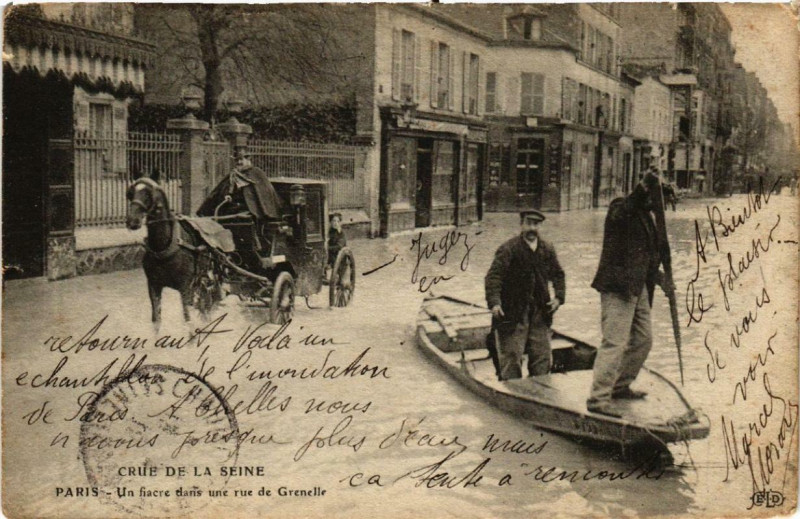 Jugez
en
retournant. Voilà un
echantillon de l'inondation
de Paris. A Chelles nous
n'avons presque plus d'eau mais
ca tente à remonter
A Bientot
le plaisir
de vous
voir
Marcel
CRUE DE LA SEINE
PARIS - Un fiacre dans une rue de Grenelle
ELD